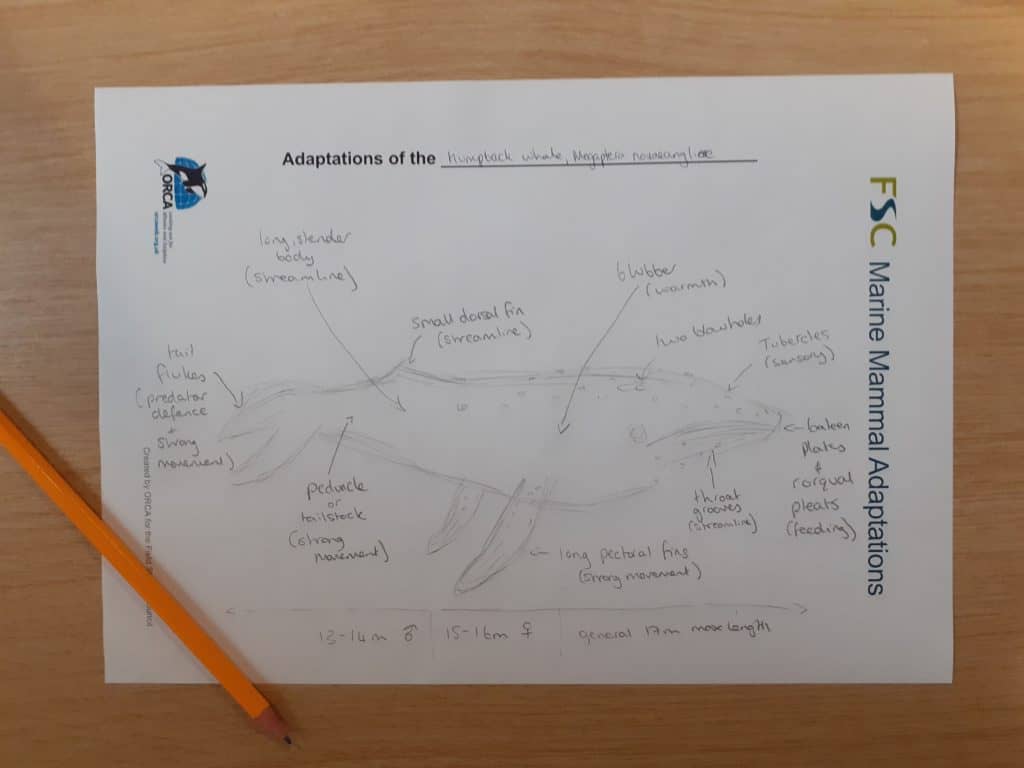 Adaptations of the humpback whale, Megaptera novaeangliae
ORCA
orcaweb.org.uk
FSC Marine Mammal Adaptations
long, slender
body
(streamline)
blubber
(warmth)
small dorsal fin
(streamline)
two blowholes
Tubercles
(sensory)
tail
flukes
(predator
defence
+
strong
movement)
baleen
plates
+
rorqual
pleats
(feeding)
peduncle
or
tailstock
(strong
movement)
throat
grooves
(streamline)
long pectoral fins
(strong movement)
13-14m ♂ 15-16m ♀ general 17m max length
Created by ORCA for the Field